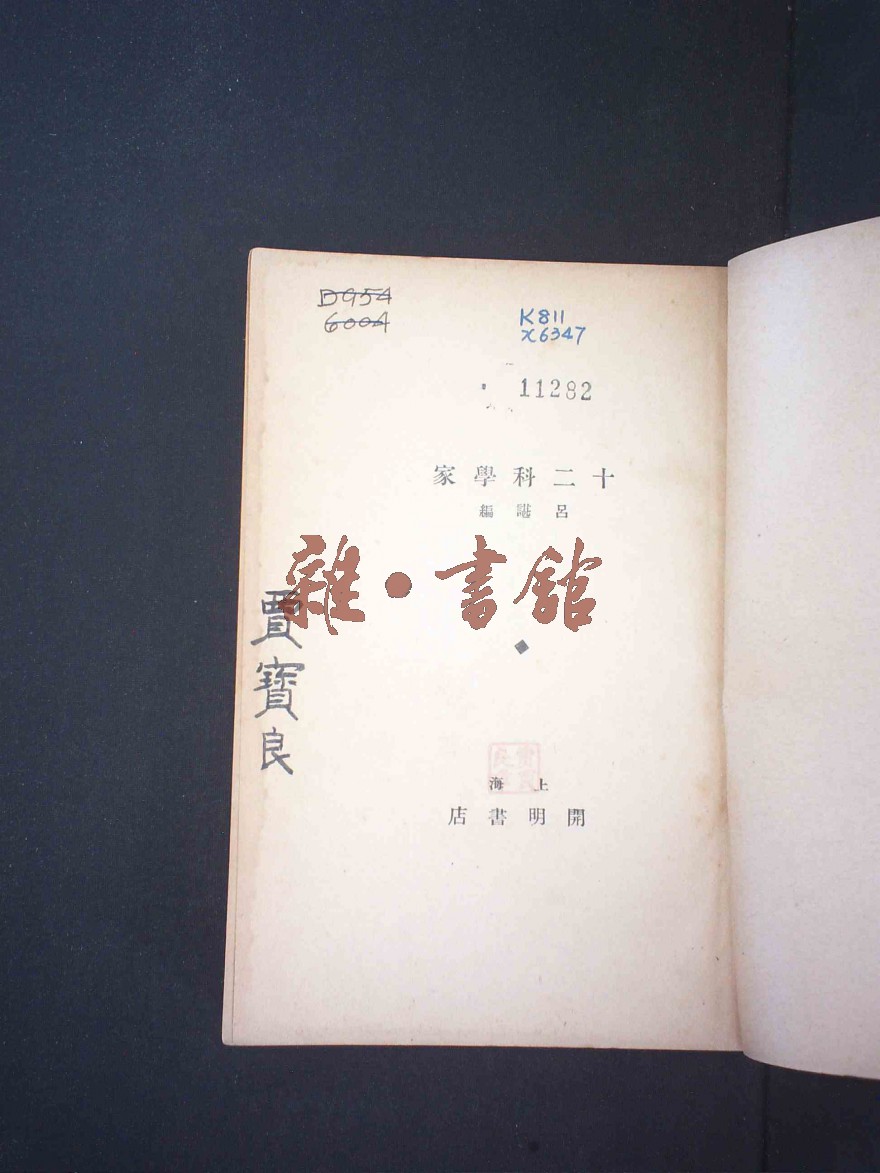 D954
6004
K811
X6347
11282
十二科學家
呂諶編
雜•書館
賈寶良
上海
開明書店